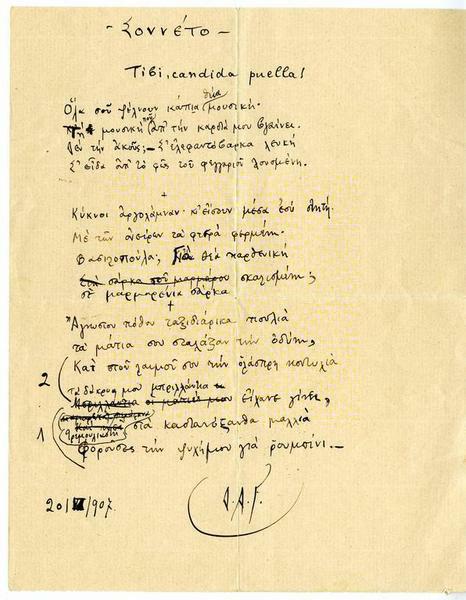 - Σοννέτο -
Tibi, candida puella!
Όλα σου ψέλνουν κάπια θεία μουσική.
μουσική που απ' την καρδιά μου βγαίνει.
Δεν την ακούς; - Σ' ελεφαντόβαρκα λευκή
Σ' είδα απ' το φως του φεγγαριού λουσμένη.
+
Κύκνοι αργολάμναν κ' είσουν μέσα εσύ
Με των ονείρων τα φτερά φερμένη.
Βασιλοπούλα; Για θεά παρθενική
σκαλισμένη;
σε μαρμαρένια σάρκα
+
Άγνωστου πόθου ταξιδιάρικα πουλιά
τα μάτια σου σταλάζαν την οδύνη,
Και στου λαιμού σου την ολάσπρη
2
τα δάκρυα μου μπριλλάντια
είχανε γίνει,
1
στα καστανόξανθα μαλλιά
Φορούσες την ψυχή μου γιά ρουμπίνι. -
20/VII/907.